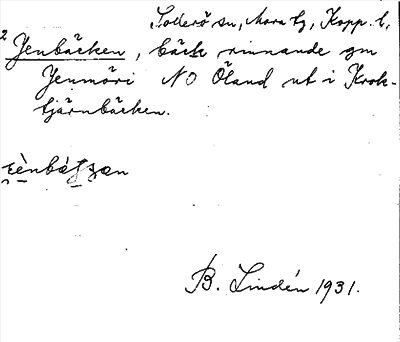 Sollerö

 sn, Mora tg, Kopp. l.
2 Jenbäcken, bäck rinnande gm
Jenmöri NO Öland ut i Krok-
tjärnbäcken.
B. Lindén 1931.